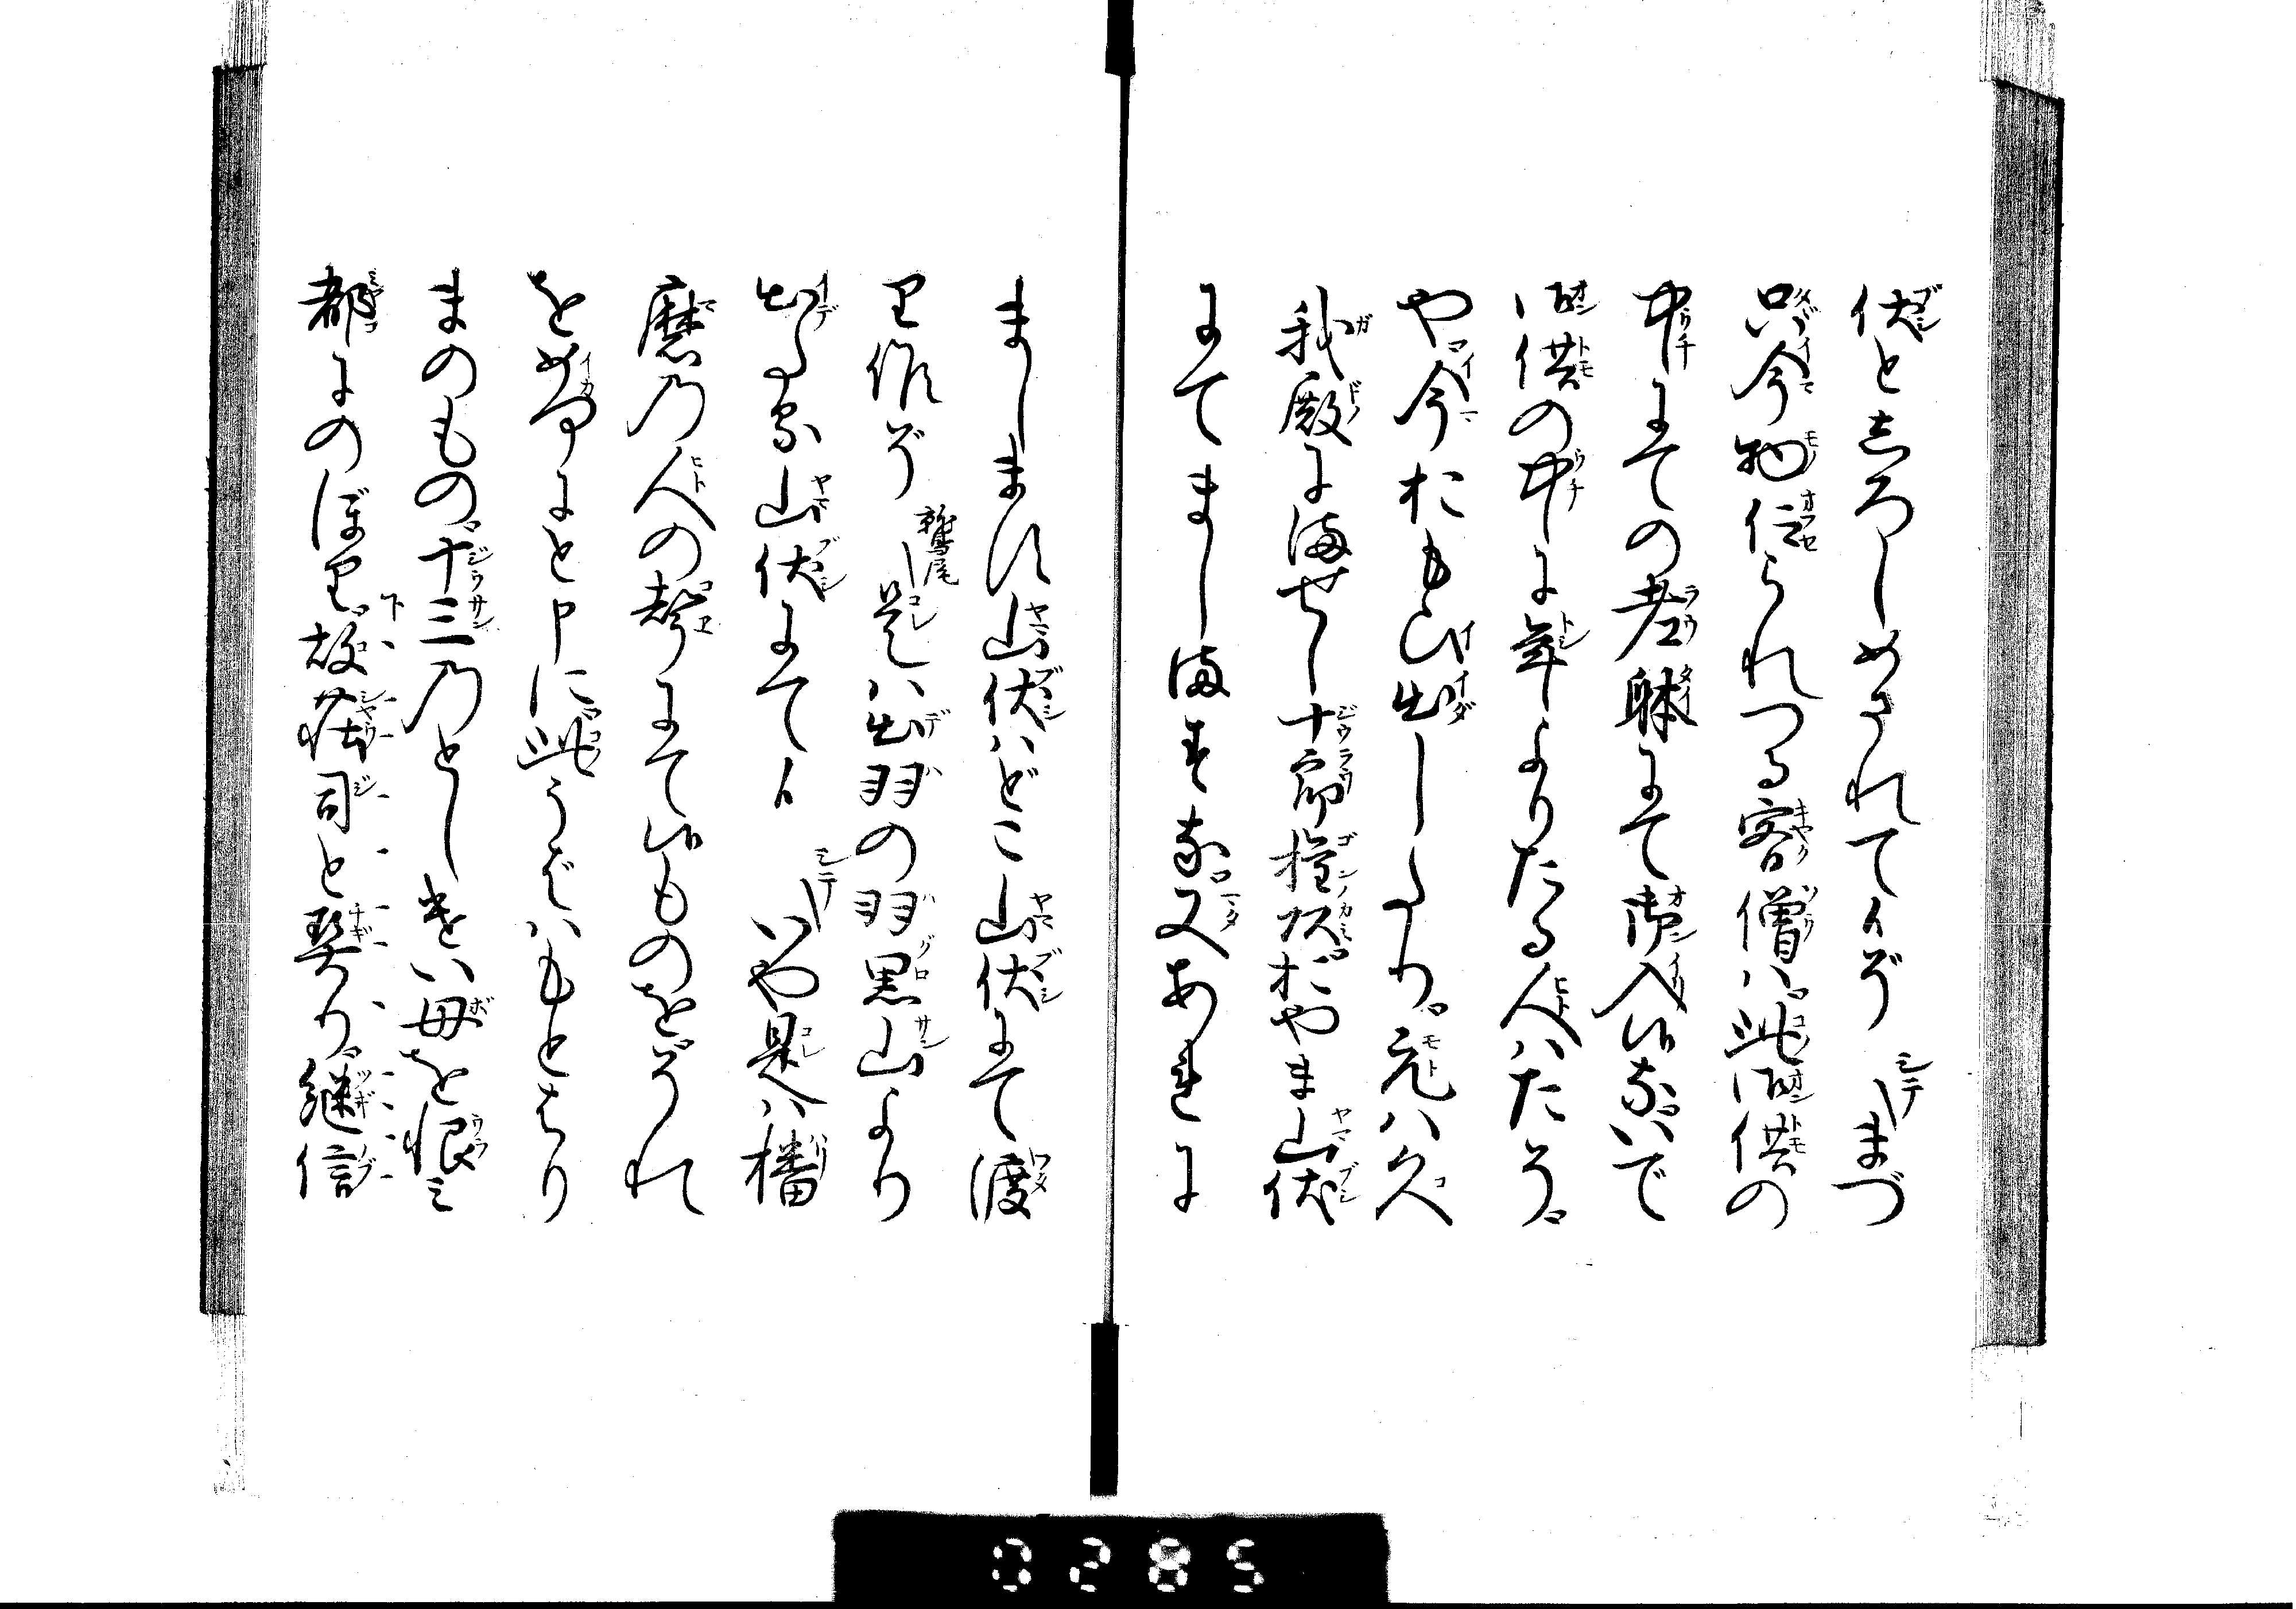 伏と志ろしめされて候ぞ　シテ〽まづ
只今物仰られつる客僧ハ此御供の
中にての老躰にて御入候な いで
御供の中に年よりたる人ハたそ
や今おもひ出したり元ハ久
我殿に満せし十郎権頭おやま山伏
にてまし満すな又あれに
まします山伏ハどこ山伏にて渡
り候ぞ　鷲尾〽是ハ出羽の羽黒山より
出たる山伏にて候　シテ〽いや是ハ播
磨の人の声にて候ものをそれ
をめ何にと申に此うばハもとより
まのもの十三のとしまい母を恨ミ
都にのぼり故荘司と契り継信
0285